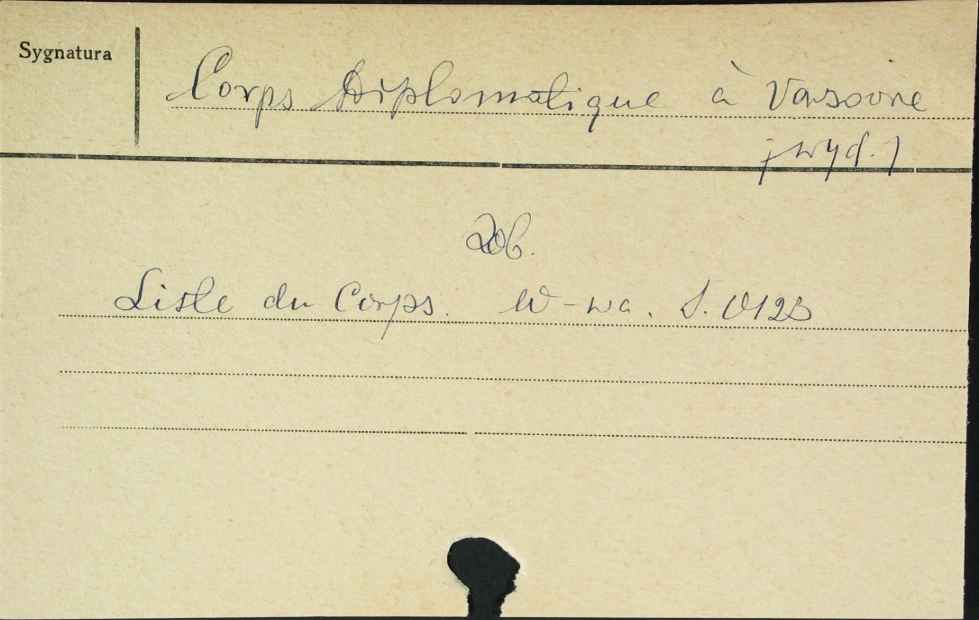 Sygnatura
Corps Diplomatique à Varsovie
[wyd.]
Zob.
Liste du Corps. W-wa. S. 0123